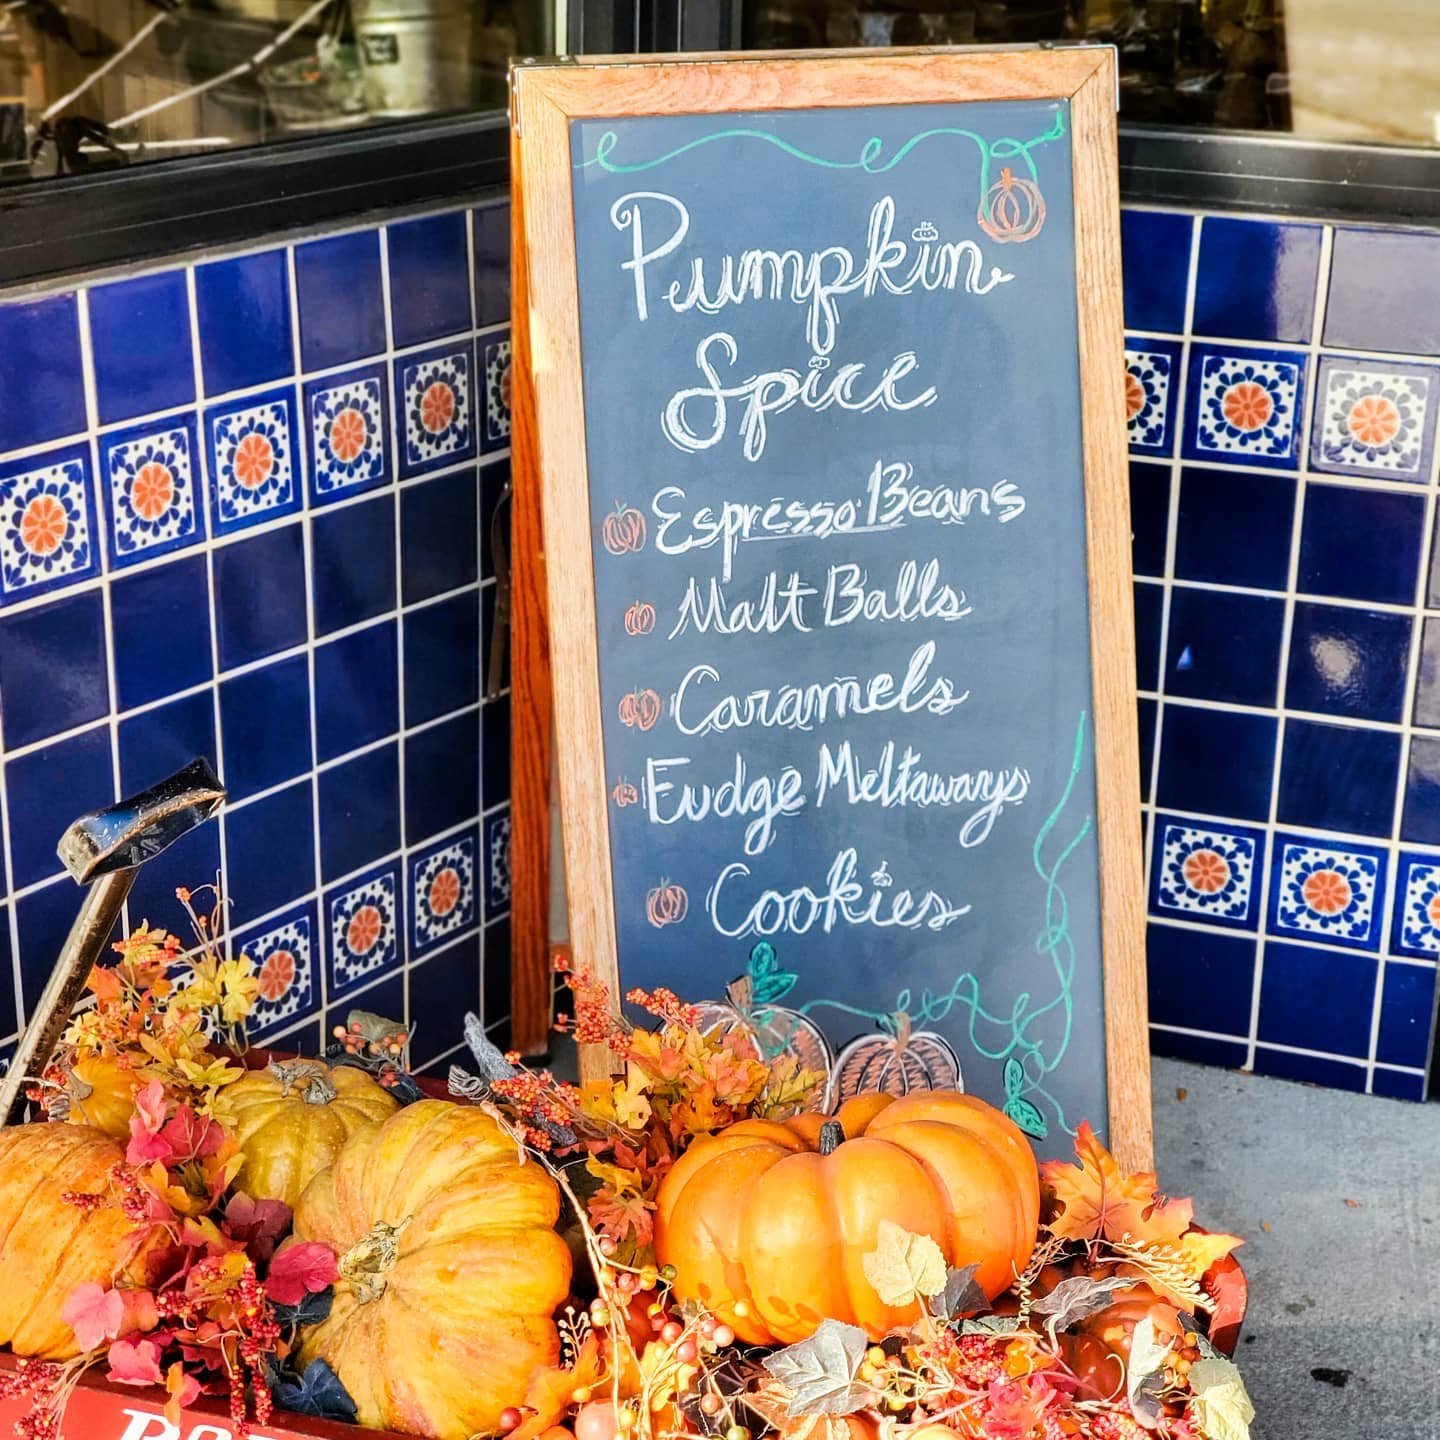 Pumpkin
Spice
Espresso Beans
Malt Balls
Caramels
Fudge Meltaways
Cookies